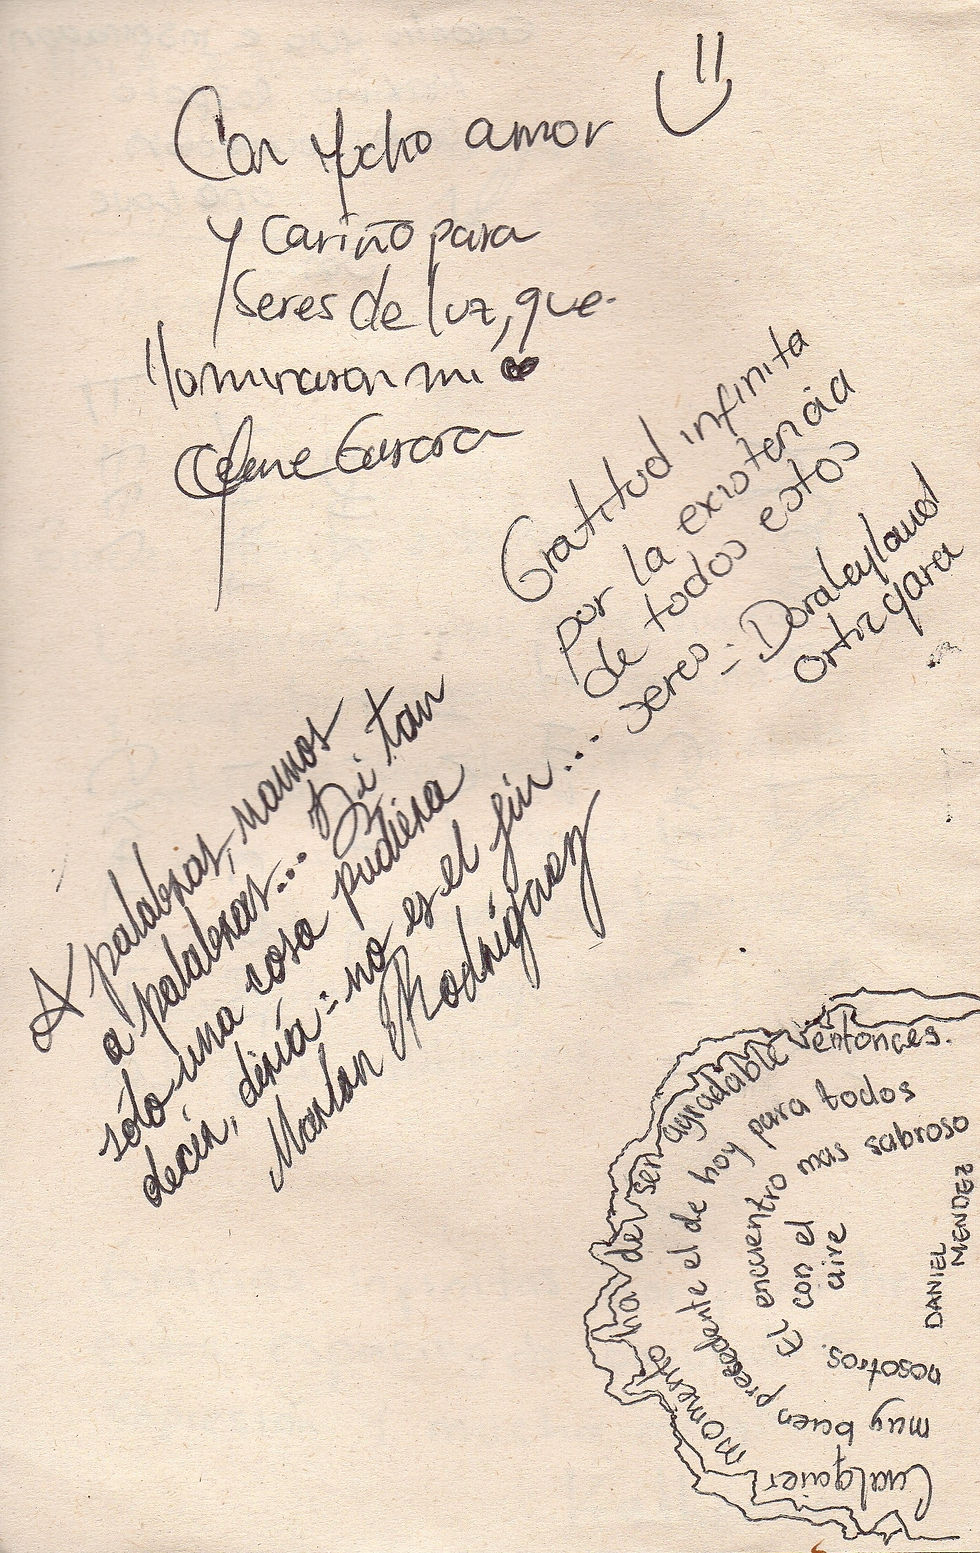 Con Mucho amor
y cariño para
seres de luz, que
Iluminaron mi
Gratitud infinita
por la existencia
de todos estos
seres = Doraleyland
Ortiz
A palabras, vamos
a palabras... Si tan
sólo una cosa pudiera
decir, diría = no es el fin...
Marlon Rodríguez
Cualquier momento ha de ser agradable entonces.
muy buen presedente el de hoy para todos
nosotros. El encuentro mas sabroso
con el
aire
DANIEL
MENDEZ